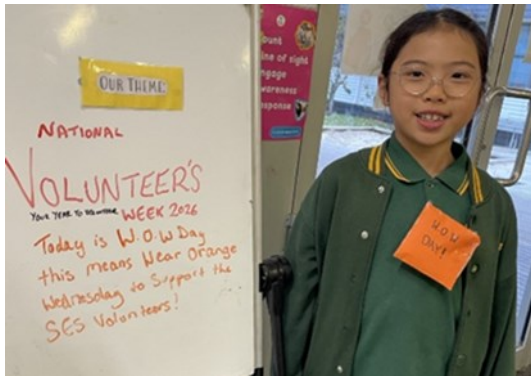 OUR THEME:
NATIONAL
VOLUNTEER'S
YOUR YEAR TO VOLUNTEER WEEK 2026
Today is W.O.W Day
this means Wear Orange
Wednesday to Support the
SES Volunteers!
ount
ine of sight
ngage
wareness
esponse
W.O.W
DAY!